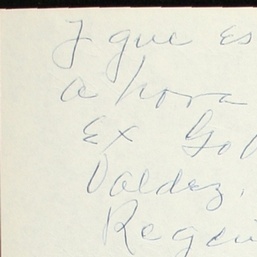 y que es
ahora
Ex Gob
Valdez.
Regen